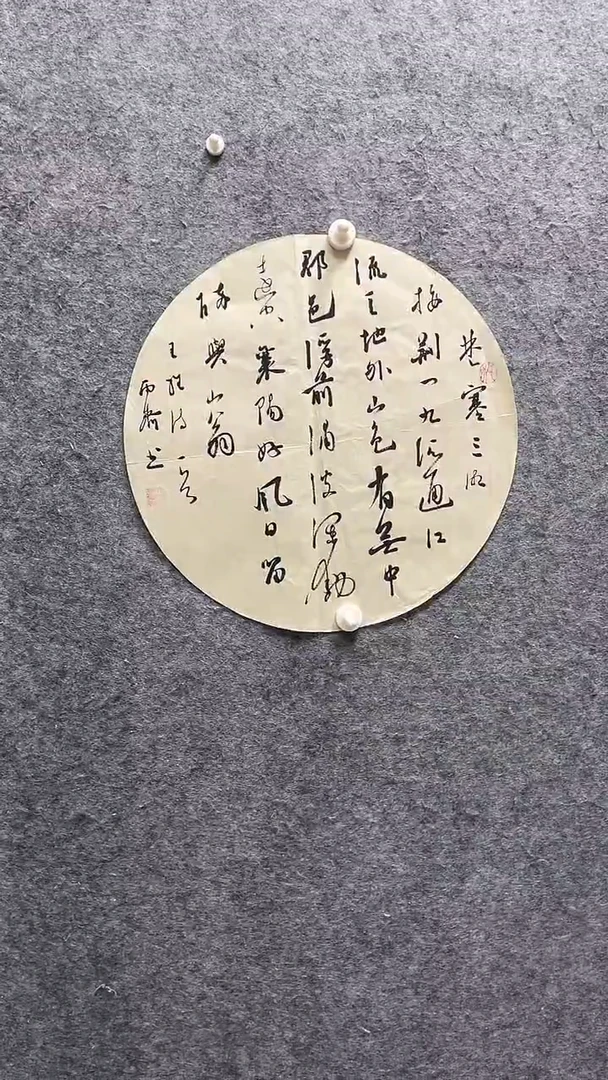 楚塞三湘
接荆门九派通江
流天地外山色有无中
郡邑浮前浦波澜动
远空襄阳好风日留
醉与山翁
王维诗一首
书